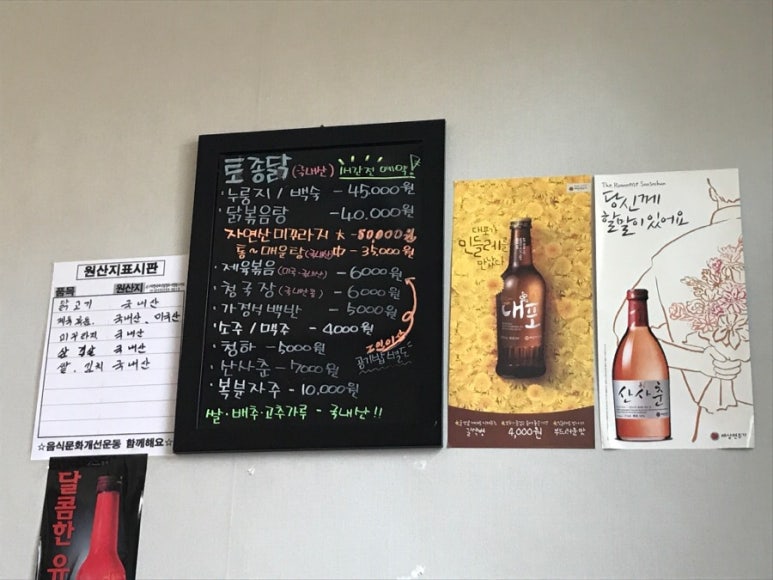 원산지표시판
품목 원산지
닭고기 국내산
제육볶음 국내산, 미국산
미꾸라지 국내산
삼겹살 국내산
쌀, 김치 국내산
☆음식문화개선운동 함께해요☆
달콤한 유
토종닭 (국내산) 1시간전 예약!
·누룽지 / 백숙 - 45,000원
·닭볶음탕 - 40,000원
자연산 미꾸라지 大 - 50000원
통~매운탕 (국내산) 中 - 35,000원
·제육볶음 - 6000원
·청국장 - 6000원
·가정식백반 - 5000원
·소주 / 맥주 - 4000원
·청하 - 5000원
·산사춘 - 7000원
·복분자주 - 10,000원
2인이상
공기밥별도
쌀·배추·고추가루 - 국내산!!
대포가
민들레를
만났다
대포
4,000원
부드러운 맛
The Romantist SanSachun
당신께
할말이있어요
산사춘
배상면주가